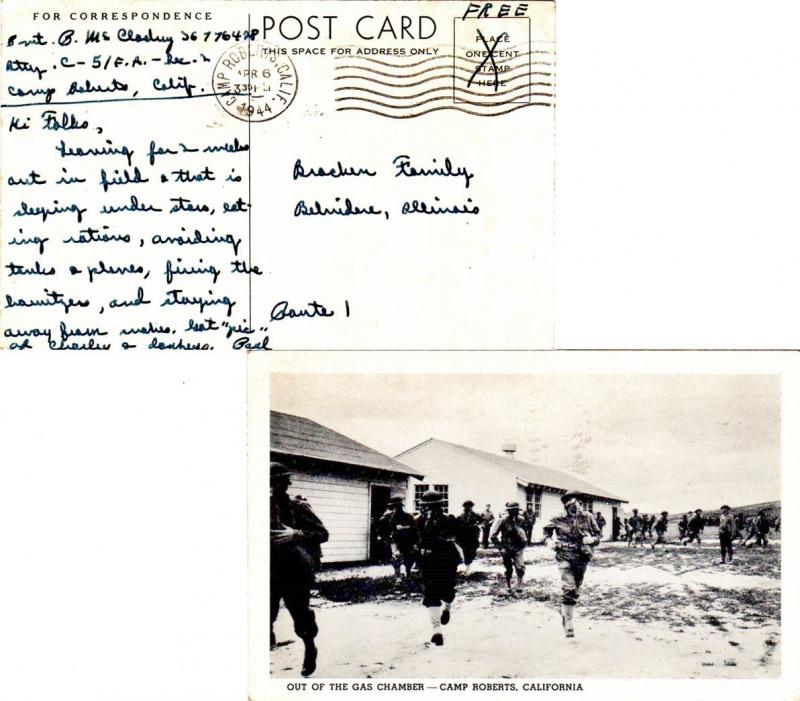 FOR CORRESPONDENCE
Pvt. B. McCloskey 36776428
Btry. C - 51 F.A. - Sec. 2
Camp Roberts, Calif.
Hi Folks,
Leaving for 2 weeks
out in field & that is
sleeping under stars, eat-
ing rations, avoiding
tanks & planes, firing the
howitzers, and staying
away from snakes. Got "pic"
of Charley &
POST CARD
THIS SPACE FOR ADDRESS ONLY
FREE
PLACE
ONE CENT
STAMP
HERE
CAMP ROBERTS, CALIF.
APR 6
1944
Bracken Family
Belvidere, Illinois
Route 1
OUT OF THE GAS CHAMBER — CAMP ROBERTS, CALIFORNIA